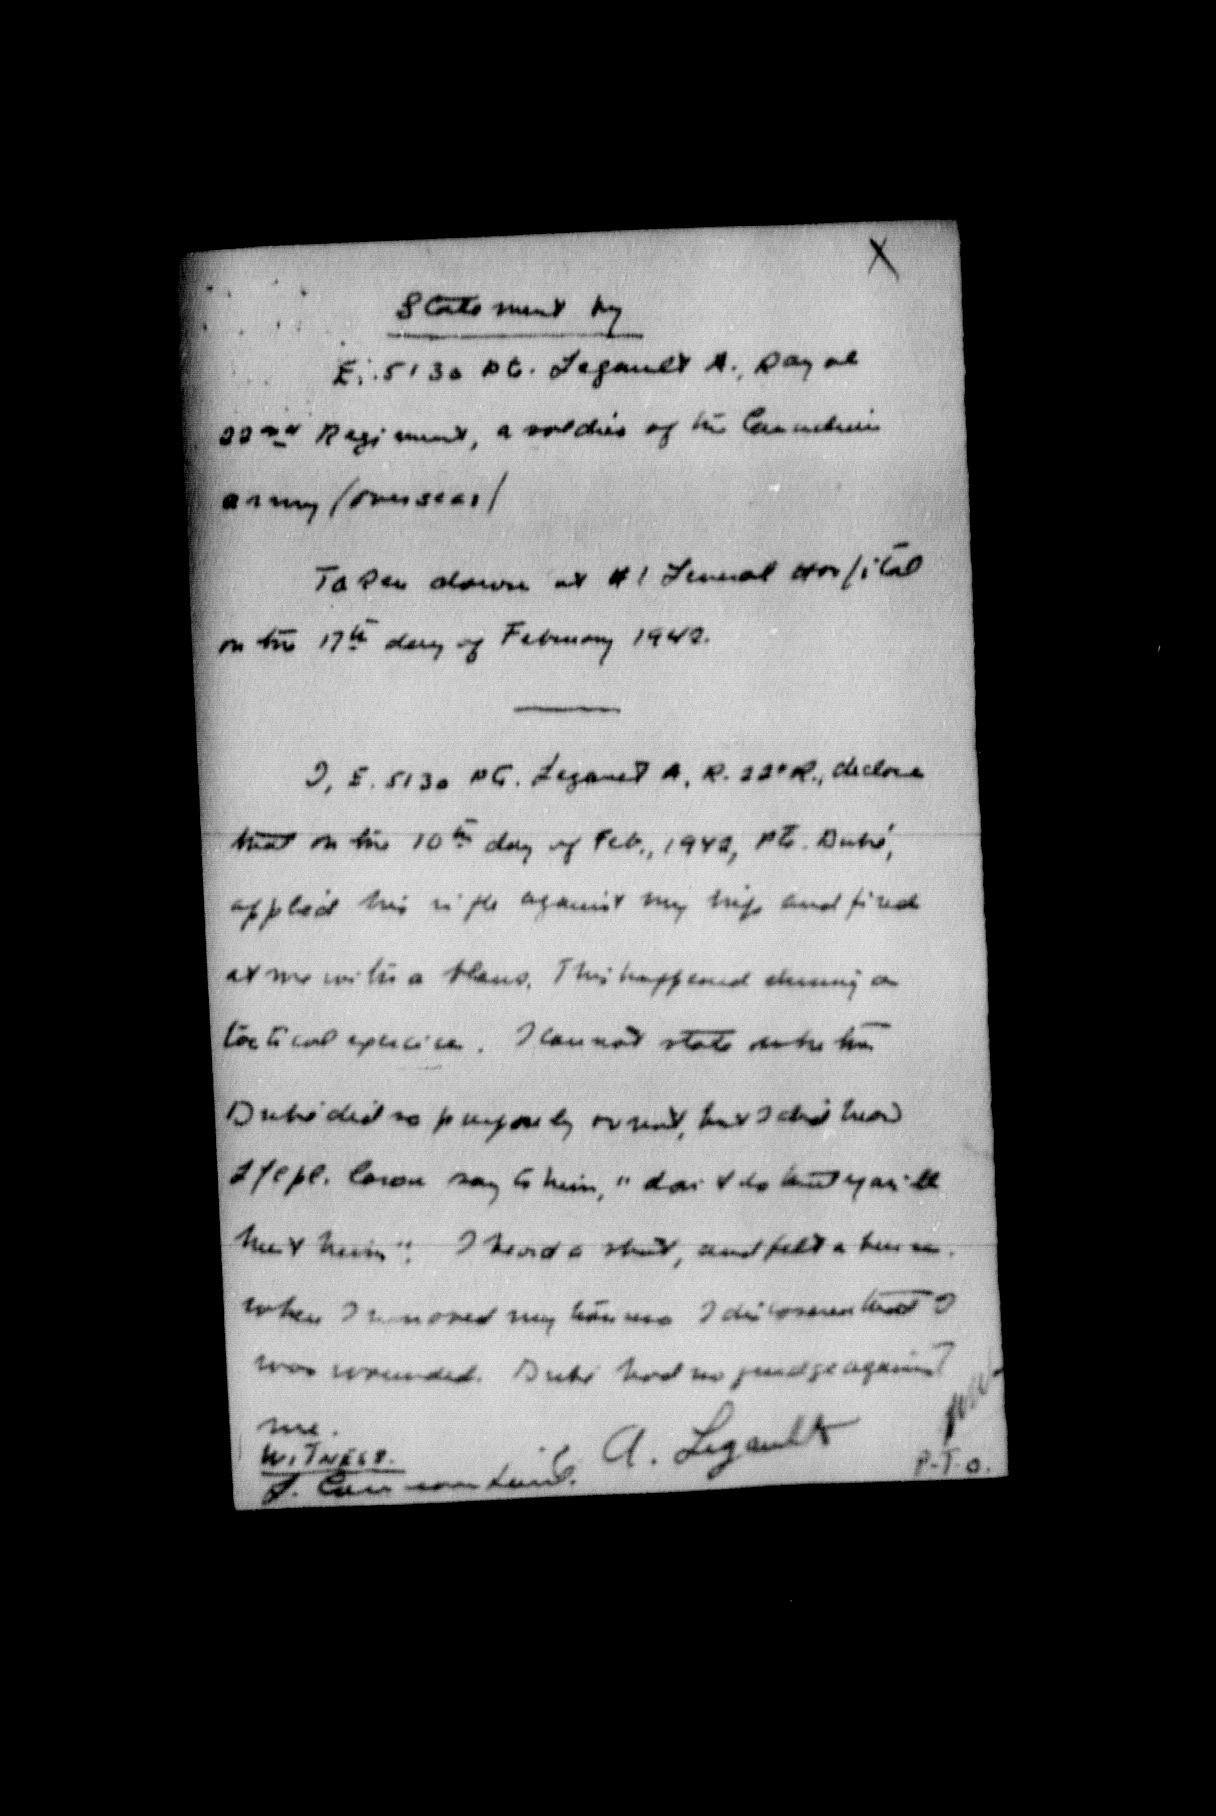 X
Statement by
E. 5130 Pte. Legault A., Royal
22nd Regiment, a soldier of the Canadian
army (overseas)
Taken down at #1 General Hospital
on the 17th day of February 1942.
I, E. 5130 Pte. Legault A, R. 22e R., declare
that on the 10th day of Feb., 1942, Pte. Dubé,
applied his rifle against my hip and fired
at me with a blank. This happened during a
tactical exercise. I cannot state whether
Dubé did so purposely or not, but I did hear
L/Cpl. Caron say to him, "don't do that you'll
hurt him". I heard a shot, and felt a burn.
when I removed my trousers I discovered that I
was wounded. Dubé had no grudge against
me.
WITNESS.
A. Legault
P.T.O.